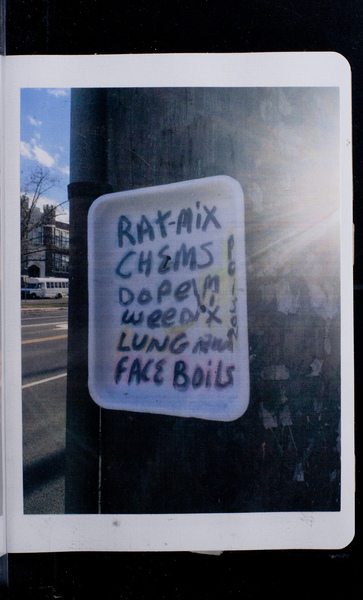 RAT-MIX
CHEMS
DOPE
WEED
MIX
LUNG
FACE BOILS